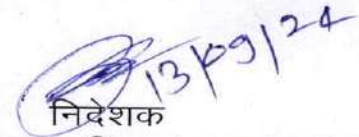 13/09/24
निदेशक